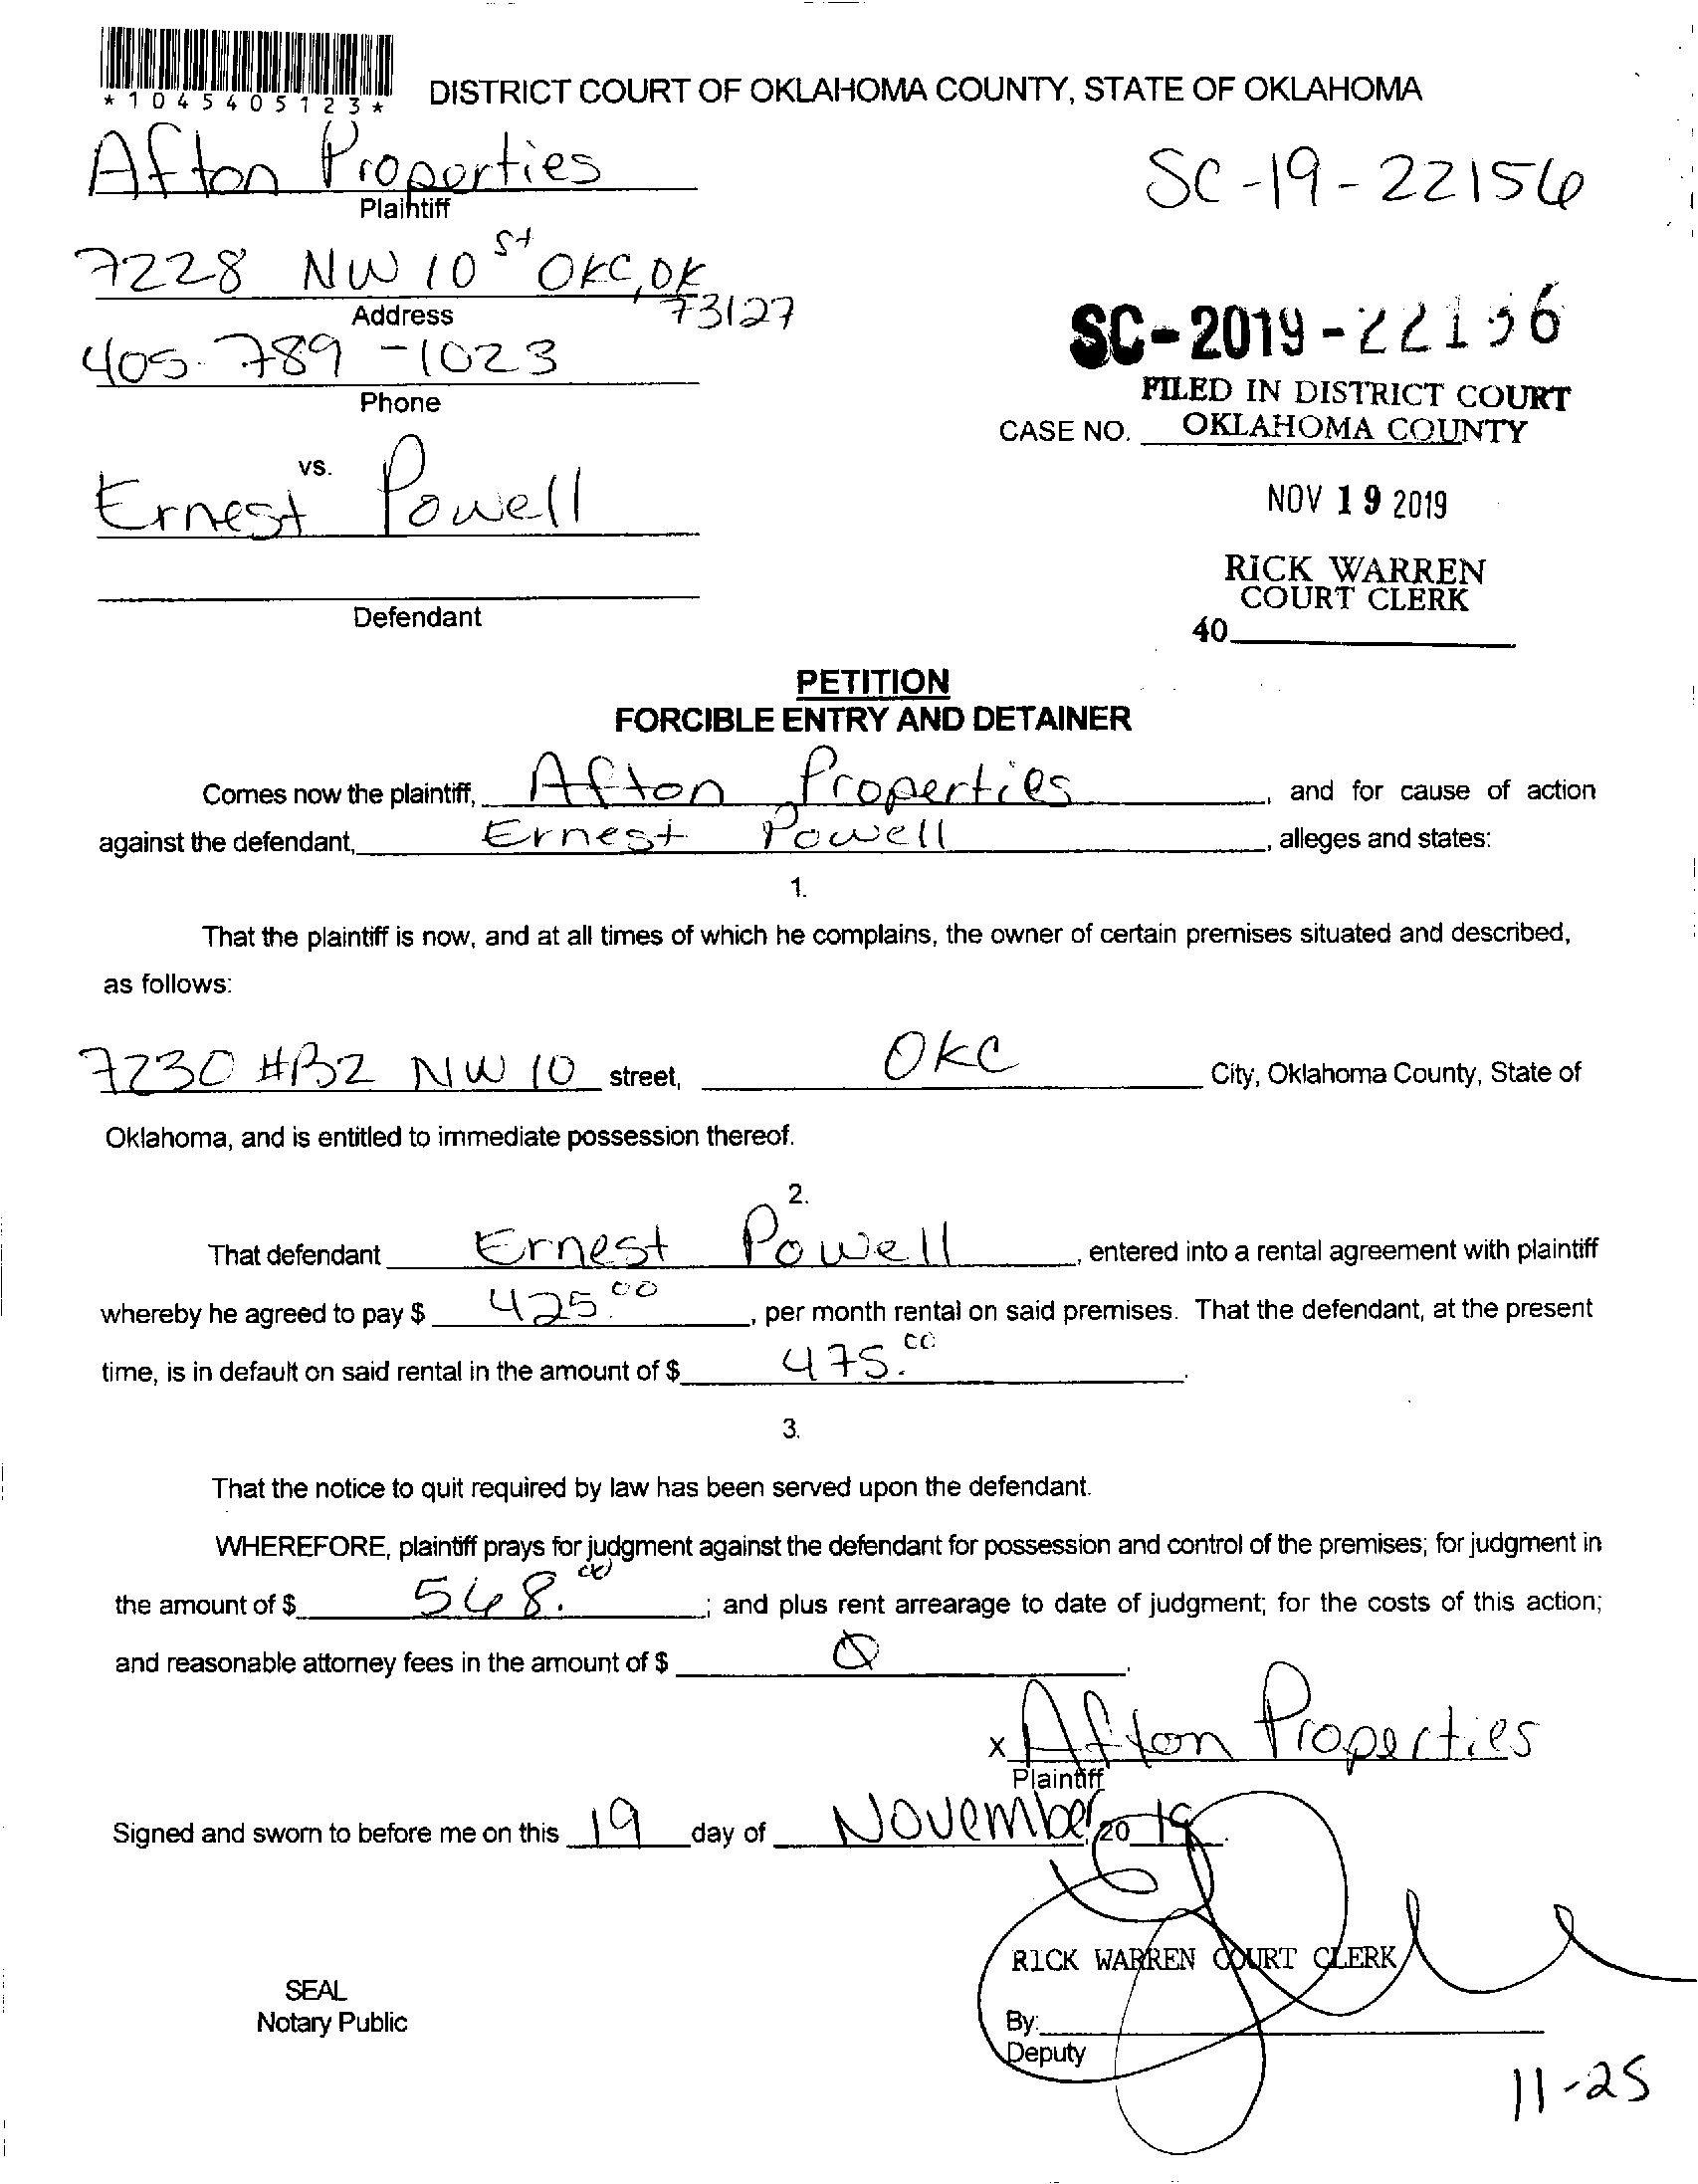 *1045405123*
DISTRICT COURT OF OKLAHOMA COUNTY, STATE OF OKLAHOMA
Afton Properties
Plaintiff
SC-19-22156
7228 NW 10 St OKC, OK
73127
Address
405-789-1023
Phone
SC-2019-22156
FILED IN DISTRICT COURT
OKLAHOMA COUNTY
CASE NO.
vs.
Ernest Powell
NOV 19 2019
RICK WARREN
COURT CLERK
Defendant
40
PETITION
FORCIBLE ENTRY AND DETAINER
Comes now the plaintiff, Afton Properties, and for cause of action
against the defendant, Ernest Powell, alleges and states:
1.
That the plaintiff is now, and at all times of which he complains, the owner of certain premises situated and described,
as follows:
7230 #B2 NW 10 street, OKC City, Oklahoma County, State of
Oklahoma, and is entitled to immediate possession thereof.
2.
That defendant Ernest Powell, entered into a rental agreement with plaintiff
whereby he agreed to pay $ 425.00, per month rental on said premises. That the defendant, at the present
time, is in default on said rental in the amount of $ 475.00.
3.
That the notice to quit required by law has been served upon the defendant.
WHEREFORE, plaintiff prays for judgment against the defendant for possession and control of the premises; for judgment in
the amount of $ 568.00; and plus rent arrearage to date of judgment; for the costs of this action;
and reasonable attorney fees in the amount of $ 0.
x Afton Properties
Plaintiff
Signed and sworn to before me on this 19 day of November, 20 19.
RICK WARREN COURT CLERK
SEAL
Notary Public
By:
Deputy
11-25